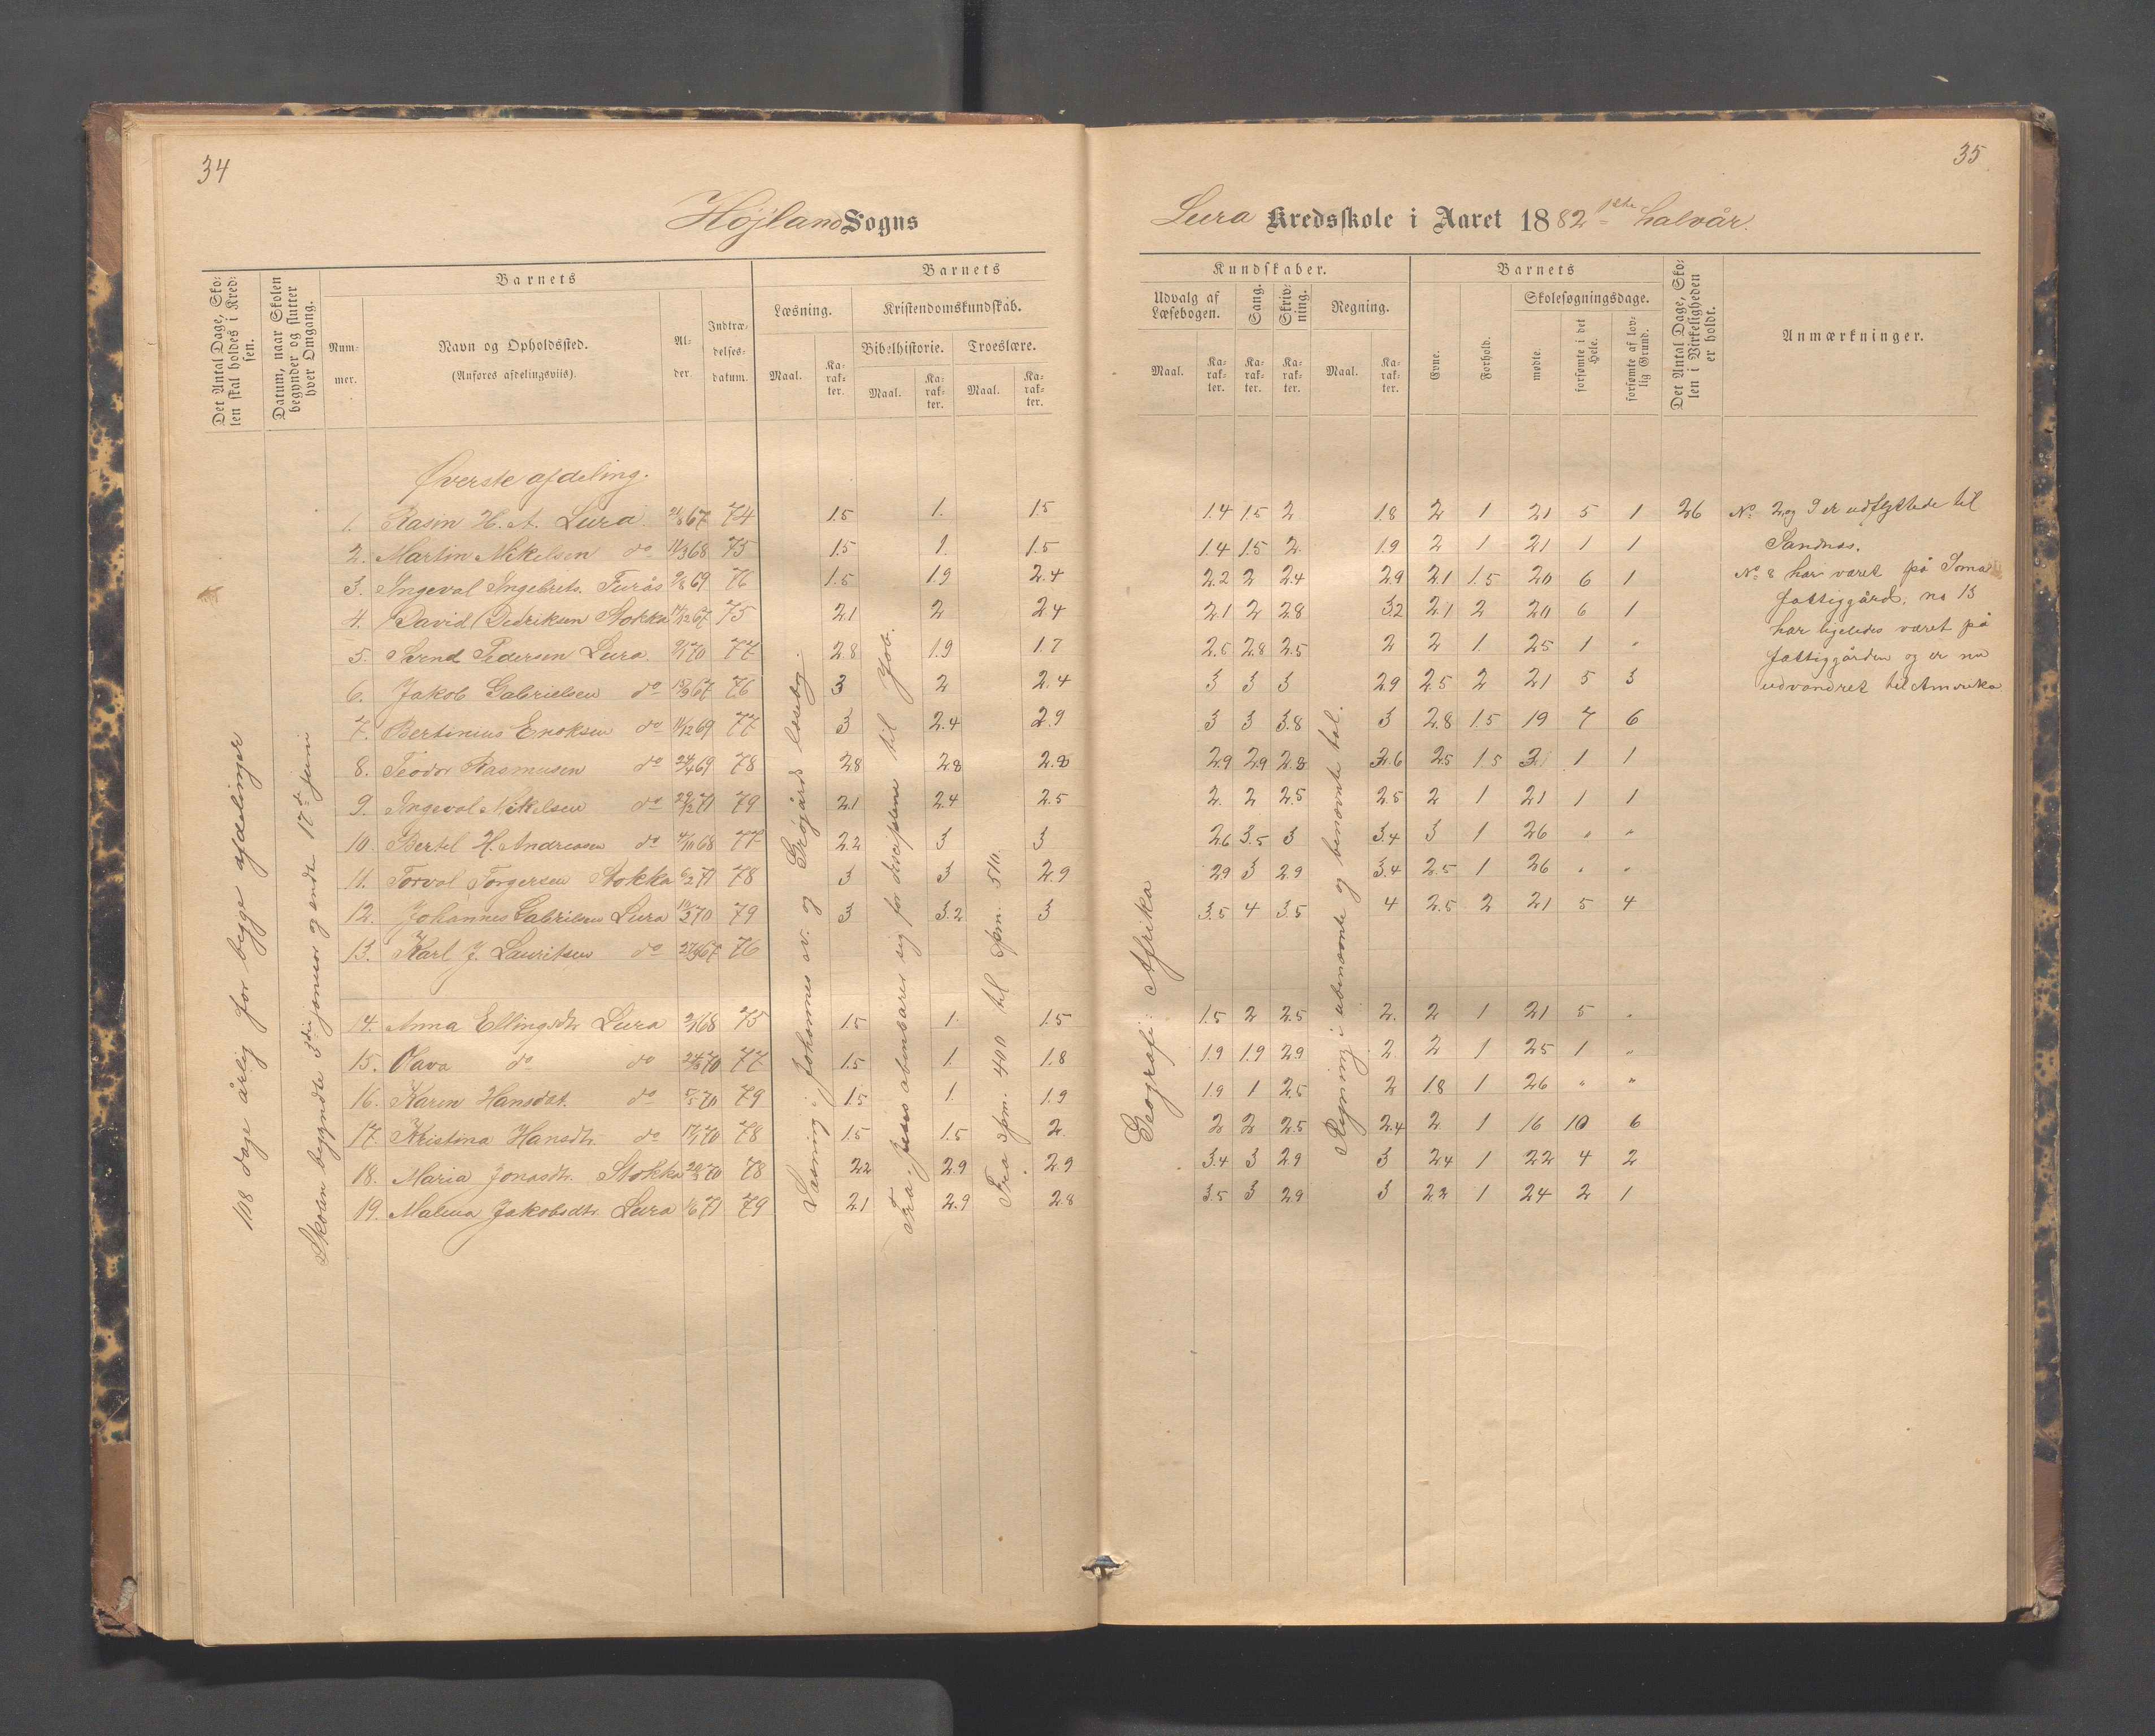 34
Højland Sogns
Det Antal Dage, Skolen skal holdes i Kredsen.
Datum, naar Skolen begynder og slutter hver Omgang.
Barnets
Nummer.
Navn og Opholdssted.
(Anføres afdelingsviis).
Alder.
Indtrædelsesdatum.
Barnets
Læsning.
Kristendomskundskab.
Bibelhistorie.
Troeslære.
Maal.
Karakter.
Maal.
Karakter.
Maal.
Karakter.
108 dage årlig for begge afdelinger
Skolen begyndte 3die januar og endte 17de juni
Læsning: Johannes ev. og Grøgårds læsebog.
Fra: Jesus åbenbarer sig for disciplene til Job.
Fra spm. 400 til spm. 510.
Øverste afdeling.
1. Rasin H. A. Lura 67 74 1.5 1. 1.5
2. Martin Mikelsen do 11/3 68 75 1.5 1. 1.5
3. Ingeval Ingebrets. 69 76 1.5 1.9 2.4
4. David Dedriksen Stokka 14/12 67 75 2.1 2 2.4
5. Svend Pedersen Lura 70 77 2.8 1.9 1.7
6. Jakob Gabrielsen do 15/9 67 76 3 2 2.4
7. Bertinius Enoksen do 11/12 69 77 3 2.4 2.9
8. Teodor Rasmusen do 24/4 69 78 2.8 2.8 2.8
9. Ingeval Mikelsen do 29/12 71 79 2.1 2.4 2.5
10. Bertel H. Andreasen do 4/10 68 77 2.2 3 3
11. Torval Torgersen Stokka 6/2 71 78 3 3 2.9
12. Johannes Gabrilsen Lura 70 79 3 3.2 3
13. Karl J. Lauritsen do 67 76
14. Anna Ellingsdtr Lura 68 75 1.5 1. 1.5
15. Olava do do 70 77 1.5 1. 1.8
16. Karen Hansdat. do 5/5 70 79 1.5 1. 1.9
17. Kristina Hansdtr. do 70 78 1.5 1.5 2.
18. Maria Jonasdtr. Stokka 70 78 2.2 2.9 2.9
19. Malena Jakobsdtr. Lura 1/6 71 79 2.1 2.9 2.8
35
Lura Kredsskole i Aaret 1882 1ste halvår.
Kundskaber.
Udvalg af Læsebogen.
Sang.
Skrivning.
Regning.
Maal.
Karakter.
Karakter.
Karakter.
Maal.
Karakter.
Barnets
Evne.
Forhold.
Skolesøgningsdage.
mødte.
forsømte i det Hele.
forsømte af lovlig Grund.
Det Antal Dage, Skolen i Virkeligheden er holdt.
Anmærkninger.
Geografi: Afrika
Regning i ubenævnte og benævnte tal.
1.4 1.5 2 1.8 2 1 21 5 1 26
1.4 1.5 2. 1.9 2 1 21 1 1
2.2 2 2.4 2.9 2.1 1.5 20 6 1
2.1 2 2.8 3.2 2.1 2 20 6 1
2.5 2.8 2.5 2 2 1 25 1 "
3 3 3 2.9 2.5 2 21 5 3
3 3 3.8 3 2.8 1.5 19 7 6
2.9 2.9 2.8 3.6 2.5 1.5 1 1
2. 2 2.5 2.5 2 1 21 1 1
2.6 3.5 3 3.4 3 1 26 " "
2.9 3 2.9 3.4 2.5 1 26 " "
3.5 4 3.5 4 2.5 2 21 5 4
1.5 2 2.5 2. 2 1 21 5 "
1.9 1.9 2.9 2 2 1 25 1 "
1.9 1 2.5 2 1.8 1 26 " "
2 2 2.5 2.4 2 1 16 10 6
3.4 3 2.9 3 2.4 1 22 4 2
3.5 3 2.9 3 2.2 1 24 2 1
No. 2 og 9 er udflyttede til
Sandnæs.
No. 8 har været på Soma
fattiggård; no 13
har ligeledes været på
fattiggården og er nu
udvandret til Amerika